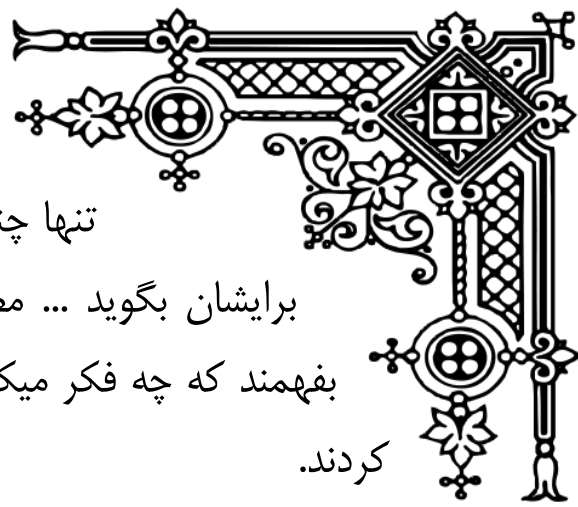 تنها
برایشان بگوید ...
بفهمند که چه فکر
کردند.